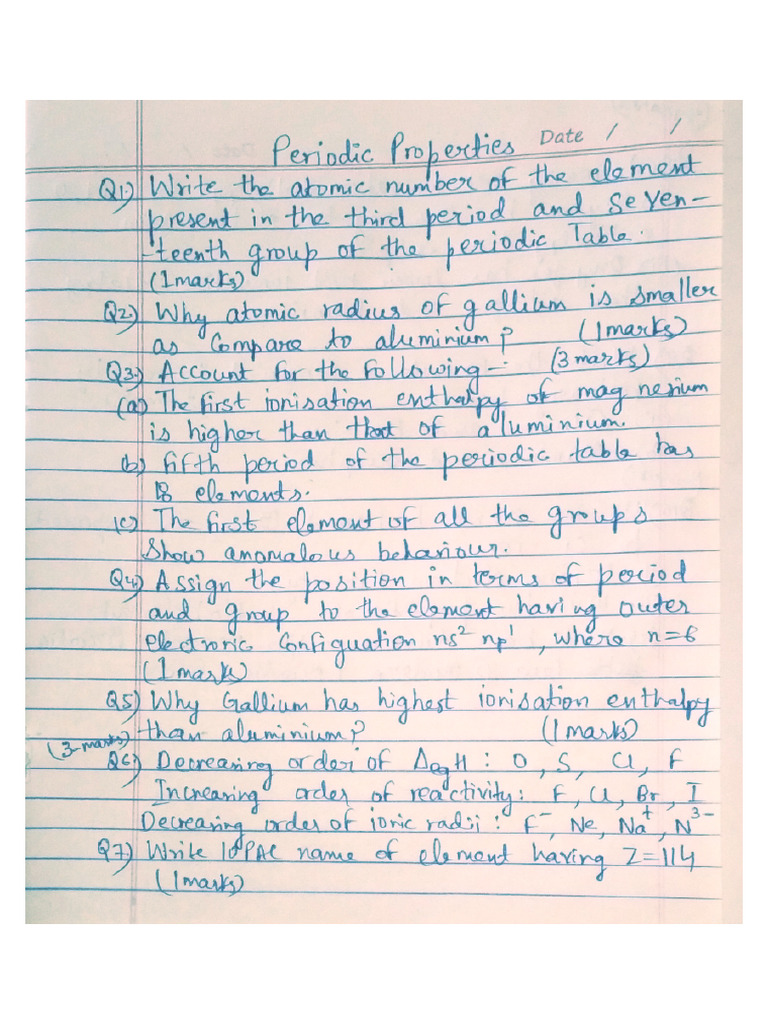 Periodic Properties Date / /
Q1.) Write the atomic number of the element
present in the third period and seven-
-teenth group of the periodic Table.
(1marks)
Q2.) Why atomic radius of gallium is smaller
as compare to aluminium? (1marks)
Q3.) Account for the following -: (3marks)
(a) The first ionisation enthalpy of magnesium
is higher than that of aluminium.
(b) fifth period of the periodic table has
18 elements.
(c) The first element of all the groups
show anomalous behaviour.
Q4.) Assign the position in terms of period
and group to the element having outer
electronic configuation ns² np¹, where n=6
(1marks)
Q5) Why Gallium has highest ionisation enthalpy
than aluminium? (1marks)
(3-marks)
Q6) Decreasing order of ΔegH : O, S, Cl, F
Increasing order of reactivity: F, Cl, Br, I
Decreasing order of ionic radii : F⁻, Ne, Na⁺, N³⁻
Q7) Write IUPAC name of element having Z=114
(1marks)